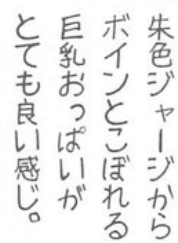 朱色ジャージから
ボインとこぼれる
巨乳おっぱいが
とても良い感じ。